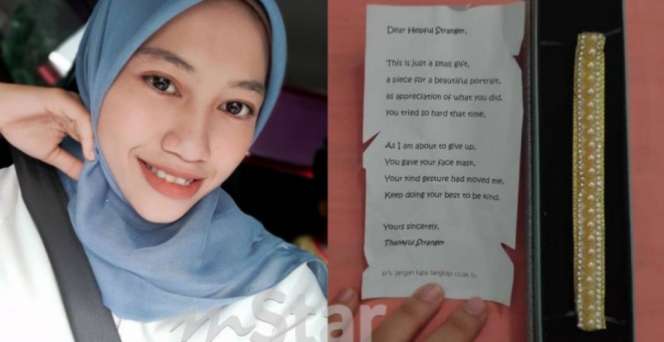 Dear Helpful Stranger,
This is just a small gift,
a piece for a beautiful portrait,
as appreciation of what you did,
You tried so hard that time,
As I am about to give up,
You gave your face mask,
Your kind gesture had moved me,
Keep doing your best to be kind.
Yours sincerely,
Thankful Stranger
p/s: jangan lupa tangkap
mStar